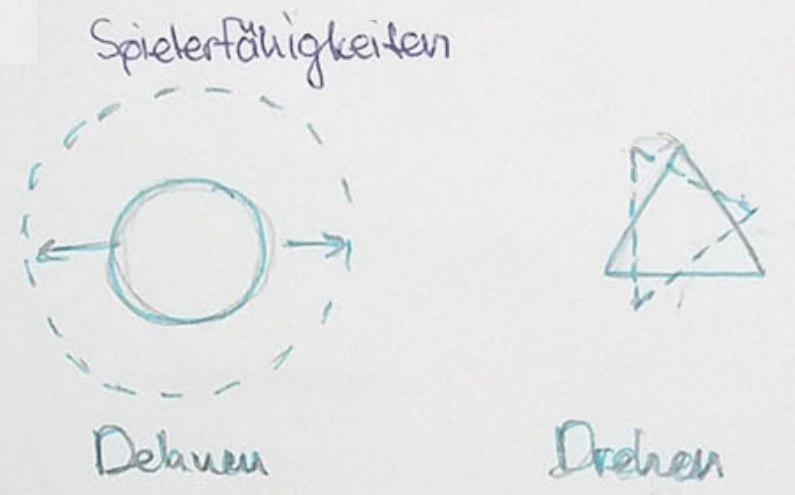 Spielerfähigkeiten
Dehnen Drehen